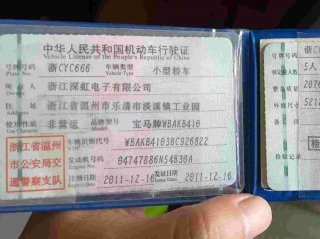 中华人民共和国机动车行驶证
Vehicle License of the People's Republic of China
号牌号码 浙CYC666 车辆类型 小型轿车
Plate No. Vehicle Type
所有人 浙江深虹电子有限公司
Owner
住址 浙江省温州市乐清市淡溪镇工业园
Address
使用性质 非营运 品牌型号 宝马牌WBAKB410
浙江省温州
市公安局交
通警察支队
车辆识别代号 WBAKB4103BC926822
VIN
发动机号码 04747886N54B30A
Engine No.
注册日期 2011-12-16 发证日期 2011-12-16
Register Date Issue Date
号牌号码
5人
检验记录